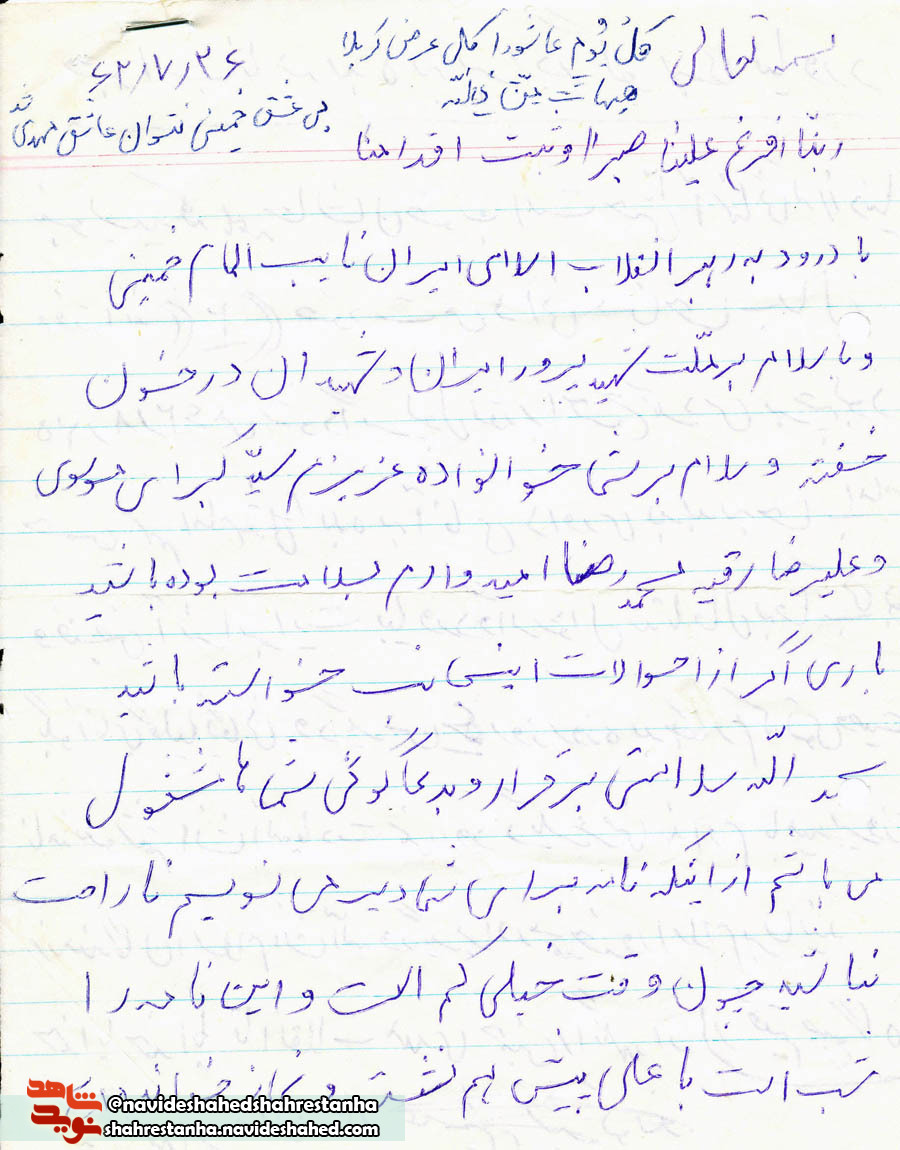 بسمه تعالی
کل یوم عاشورا کل عرض کربلا
هیهات من ذالله
۶۲/۷/۲۶
بی عشق خمینی نتوان عاشق مهدی شد
ربنا افرغ علینا صبرا و ثبت اقدامنا
با درود به رهبر انقلاب اسلامی ایران نایب الامام خمینی
و با سلام بر ملت شهید پرور ایران و شهیدان در خون
خفته و سلام بر شما خوانواده عزیزم سید کبرای موسوی
و علیرضا رقیه محمد رضا امیدوارم بسلامت بوده باشید
باری اگر از احوالات اینجانب خواسته باشید
الله سلامتی برقرار و بدعاگوئی شماها مشغول
می باشم از اینکه نامه برای شما دیر می نویسم ناراحت
نباشید چون وقت خیلی کم است و این نامه را
شب است با علی پیش هم نشسته و نماز
شاهد
نوید
@navideshahedshahrestanha
shahrestanha.navideshahed.com